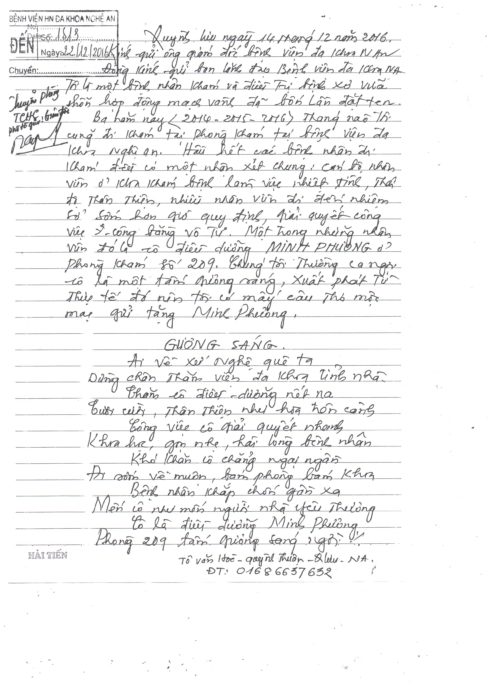 BỆNH VIỆN HN ĐA KHOA NGHỆ AN
ĐẾN Số: 1513
Ngày 22/12/2016
Chuyển:
Chuyển phòng
TCHC
Quỳnh lưu ngày 14 tháng 12 năm 2016.
Kính gửi ông giám đốc bệnh viện đa khoa N An
Đồng kính gửi ban lãnh đạo Bệnh viện đa khoa NA
Tôi là một bệnh nhân khám và điều trị bệnh xơ vữa
thân hợp động mạch vành đã bốn lần đặt ten.
Ba năm nay (2014-2015-2016) tháng nào tôi
cũng đi khám tại phòng khám tại bệnh viện đa
khoa nghệ an. Hầu hết các bệnh nhân đi
khám đều có một nhận xét chung: cán bộ nhân
viên ở khoa khám bệnh làm việc nhiệt tình, thái
độ thân thiện, nhiều nhân viên đi đến nhiệm
sở sớm hơn giờ quy định, giải quyết công
việc công bằng vô tư. Một trong những nhân
viên đó là cô điều dưỡng MINH PHƯƠNG ở
phòng khám số 209. Chúng tôi thường ca ngợi
cô là một tấm gương sáng, xuất phát từ
thực tế đó nên tôi có mấy câu thơ mộc
mạc gửi tặng Minh Phương.
GƯƠNG SÁNG.
Ai về xứ nghệ quê ta
Dừng chân thăm viện đa khoa tỉnh nhà
Thăm cô điều dưỡng nết na
Tươi cười, thân thiện như hoa trên cành
Công việc cô giải quyết nhanh
Khoa học, gọn nhẹ, hài lòng bệnh nhân
Khó khăn cô chẳng ngại ngần
Đi sớm về muộn, bám phòng bám khoa
Bệnh nhân khắp chốn gần xa
Mến cô như mến người nhà yêu thương
Cô là điều dưỡng Minh Phương
Phòng 209 tấm gương sáng ngời!
HẢI TIẾN
Tô văn Hoè - quỳnh Thuận - Q Lưu - NA.
ĐT: 01686637632